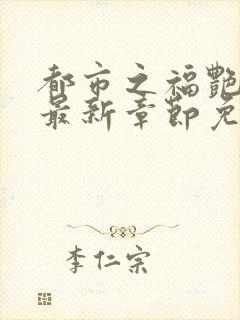 都市之福艷
最新章節免
李仁宗